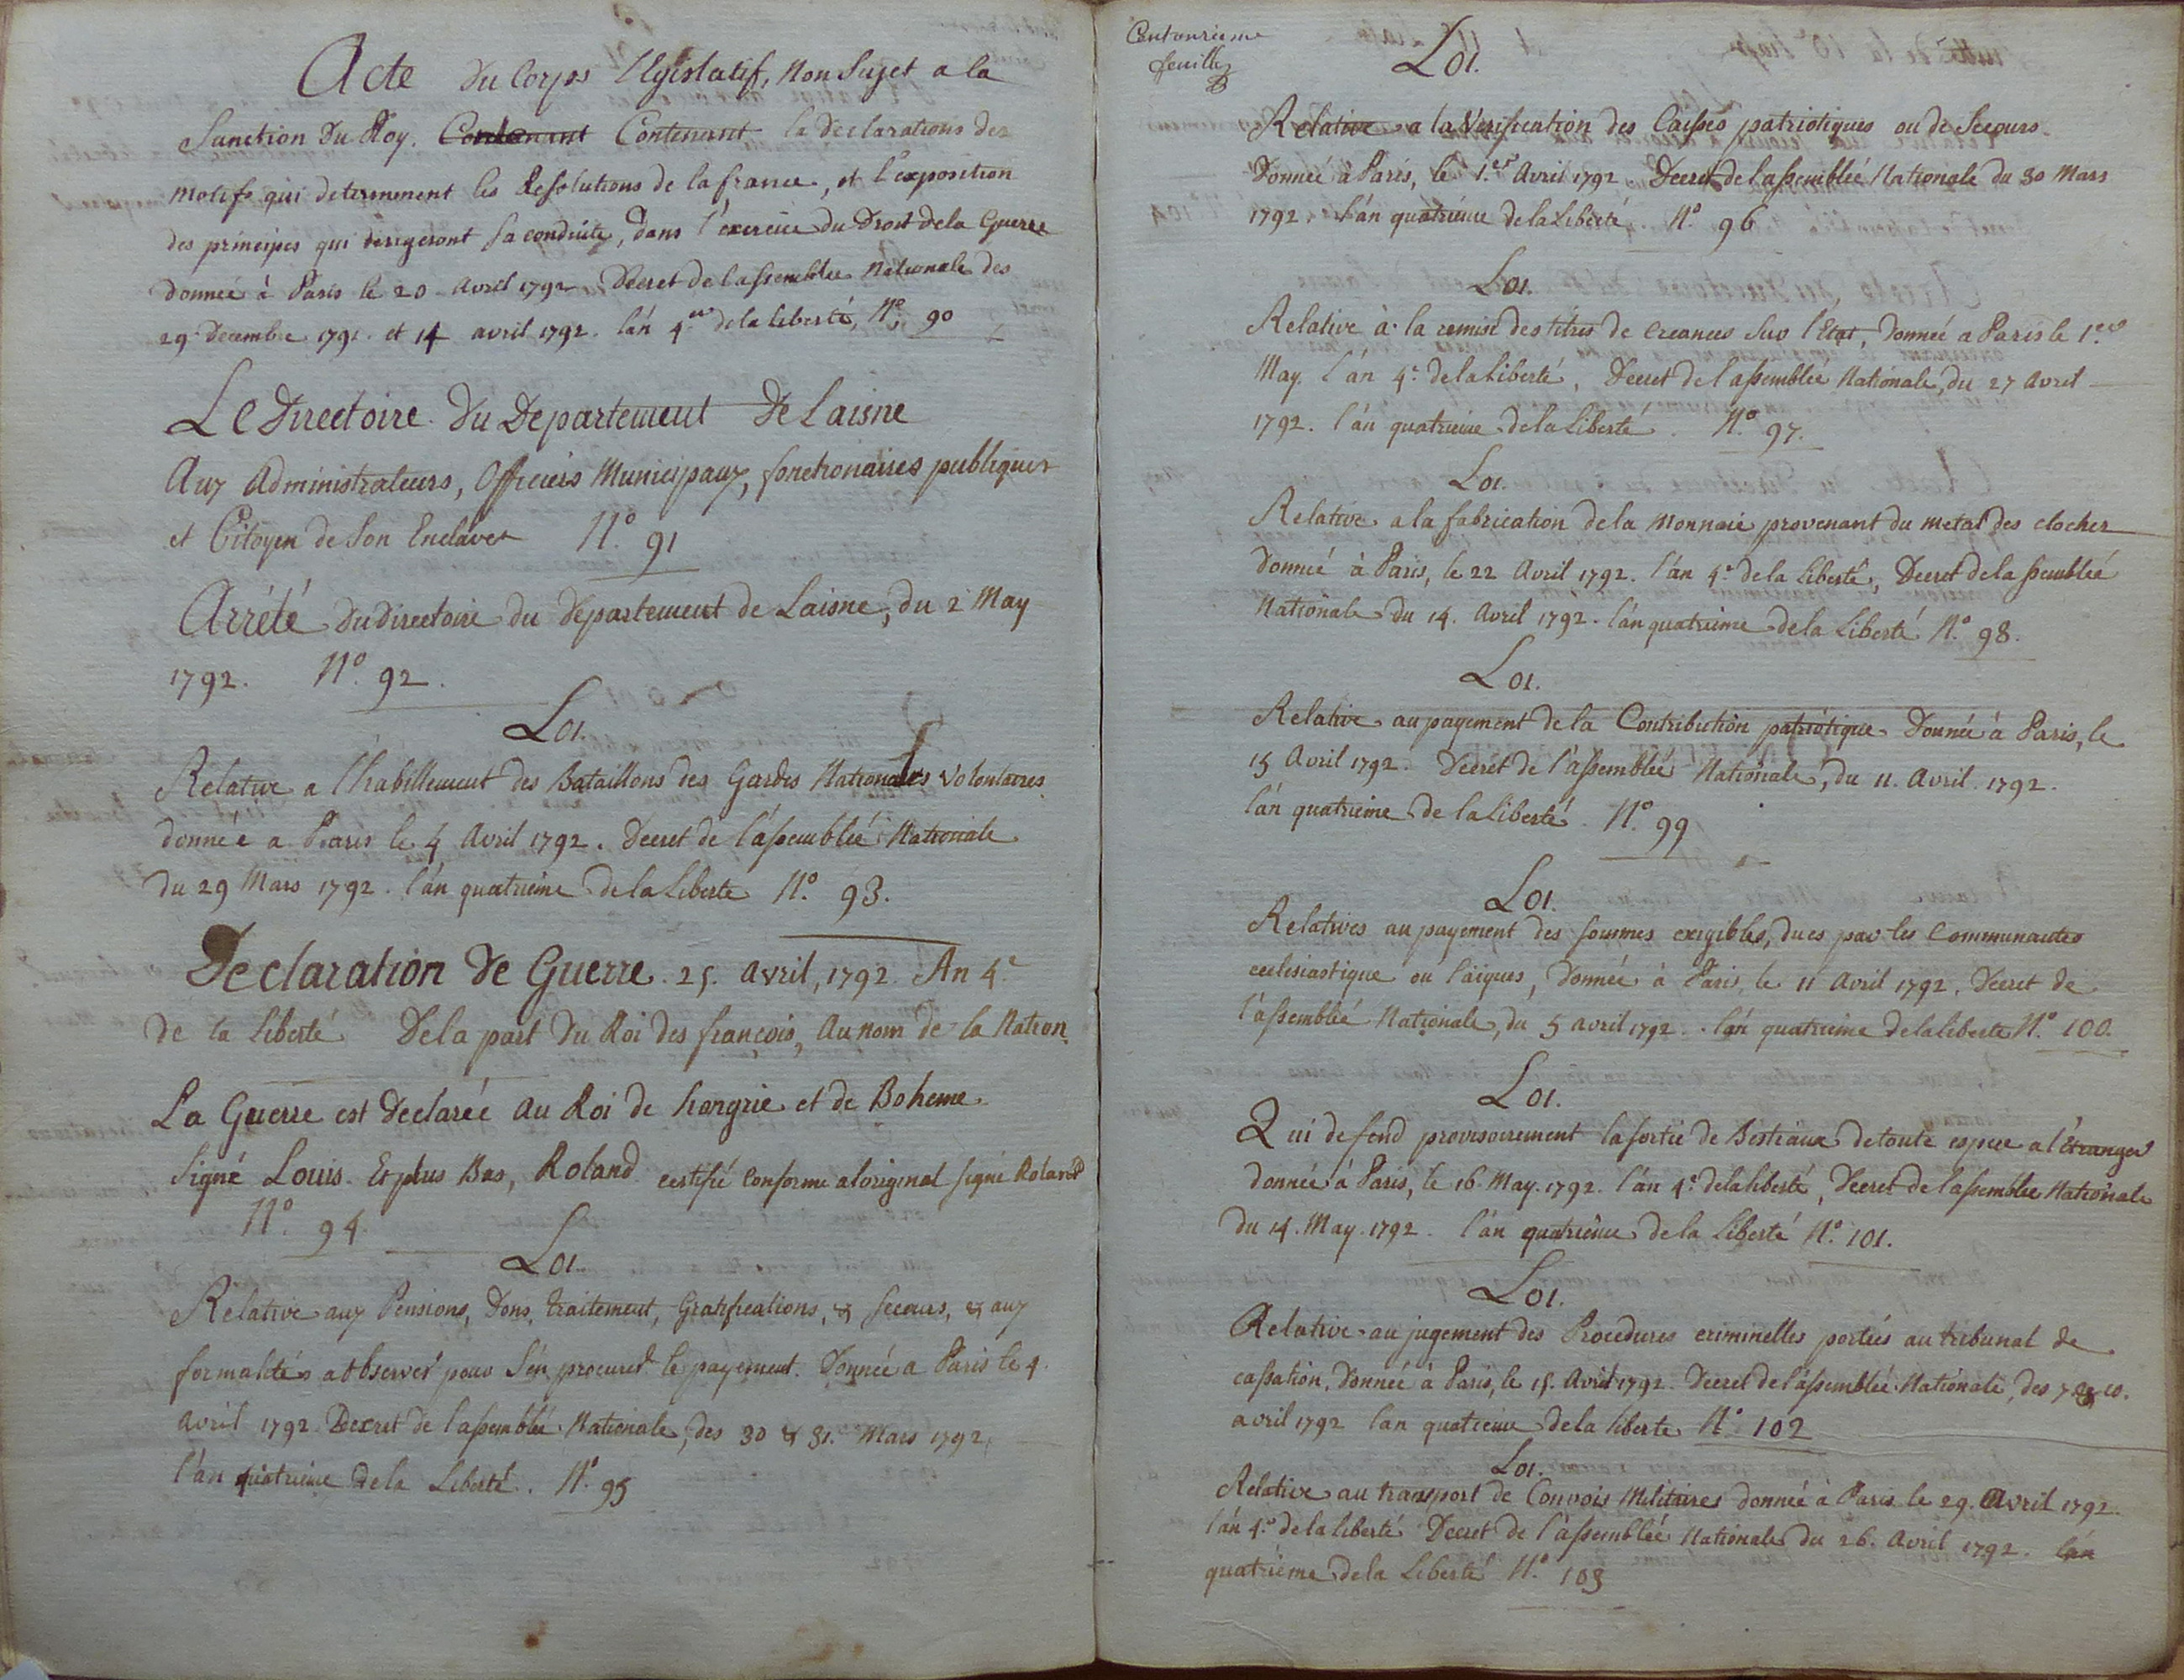 Acte du Corps Legislatif, Non Sujet a la
Sanction du Roy. Contenant Contenant la declarations des
motifs qui determinent les Resolutions de la france, et l'exposition
des principes qui dirigeront sa conduite, dans l'exercice du Droit de la Guerre
donnée à Paris le 20 Avril 1792 Décret de l'assemblée Nationale des
29 Decembre 1791. et 14 avril 1792. l'an 4.me de la liberté, N.o 90
Le Directoire du Departement De Laisne
Aux Administrateurs, Officiers Municipaux, fonctionaires publiques
et Citoyen de Son Enclaves N.o 91
Arrété du directoire du département de Laisne, du 2 May
1792. N.o 92.
Loi.
Relative a l'habillement des Bataillons des Gardes Nationales Volontaires
donnéé a Paris le 4 Avril 1792. Decret de l'assemblée Nationale
du 29 Mars 1792. l'an quatrieme de la Liberte N.o 93.
Declaration de Guerre. 25. avril, 1792. An 4.e
de la liberté De la part du Roi des françois, Au nom de la Nation
La Guerre est declarée au Roi de hongrie et de Boheme.
Signé Louis. Et plus Bas, Roland certifié conforme a loriginal signé Roland
N.o 94.
Loi.
Relative aux Pensions, Dons, traitement, Gratifications, & secours, & aux
formalités a observer pour s'en procurer le payement. Donnée a Paris le 4.
avril 1792. Decret de l'assemblée Nationale, des 30 & 31. Mars 1792,
l'an quatrieme de la Liberté. N.o 95
feuille
Loi.
Relative a la Verification des Caisses patriotiques ou de Secours
Donnée à Paris, le 1.er Avril 1792 Decret de l'assemblée Nationale du 30 Mars
1792. l'an quatrieme de la Liberté N.o 96
Loi.
Relative à la remise des titres de creances sur l'Etat, donnée a Paris le 1.er
May. l'an 4.e de la Liberté, Decret de l'assemblée Nationale, du 27 Avril
1792. l'an quatrieme de la Liberté. N.o 97.
Loi.
Relative a la fabrication de la Monnaie provenant du metal des clocher
donnée à Paris, le 22 Avril 1792. l'an 4.e de la Liberté, Decret de lassemblée
Nationale du 14. Avril 1792. l'an quatrieme de la Liberté N.o 98.
Loi.
Relative au payement de la Contribution patriotique Donnée à Paris, le
15 Avril 1792. Decret de l'assemblée Nationale, du 11. Avril. 1792.
l'an quatrieme de la liberté. N.o 99
Loi.
Relatives au payement des sommes exigibles, dues par les Communautes
ecclesiastique ou laïques, Donnée à Paris, le 11 Avril 1792. Decret de
l'assemblée Nationale, du 5 avril 1792. l'an quatrieme de la liberte N.o 100.
Loi.
Qui defend provisoirement la sortie de Bestiaux de toute espece a l'Étranger
donnée à Paris, le 16. May. 1792. l'an 4.e de la liberté, Decret de l'assemblee Nationale
du 14. May. 1792. l'an quatrieme de la Liberté N.o 101.
Loi.
Relative au jugement des Procedures criminelles portées au tribunal de
cassation, donnée à Paris, le 15. Avril 1792. Decret de l'assemblée Nationale, des 7 & 10.
avril 1792 l'an quatrieme de la liberte N.o 102
Loi.
Relative au transport de Convois Militaires donnée à Paris le 29. Avril 1792.
l'an 4.e de la liberté Decret de l'assemblée Nationale du 26. Avril 1792. l'an
quatrieme de la Liberté N.o 103